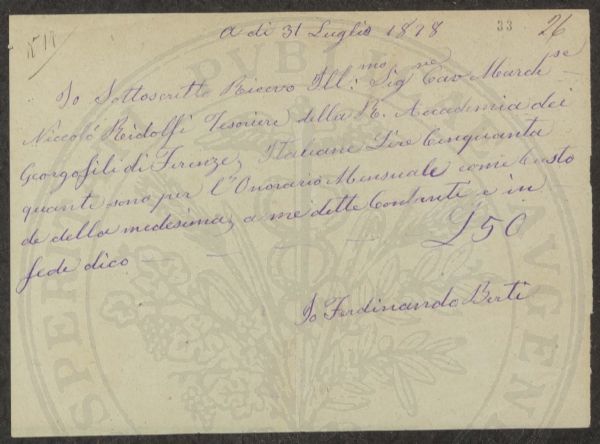 N° 19
a di 31 Luglio 1878
33
26
Io Sottoscritto Ricevo Ill:mo Sigre Cav Marchse
Niccoló Ridolfi Tesoriere della R. Accademia dei
Georgofili di Firenze, Italiane Lire Cinquanta
quante sono per l'Onorario Mensuale come Custo
de della medesima, a me dette Contanti e in
fede dico — — — — — £ 50
Io Ferdinando Berti